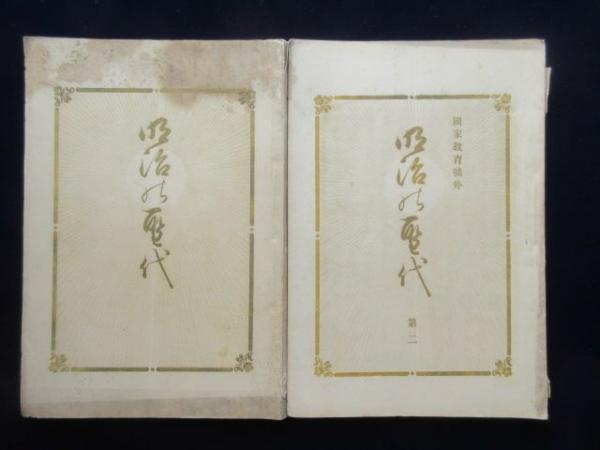 國家教育號外
明治の聖代
第二
明治の聖代